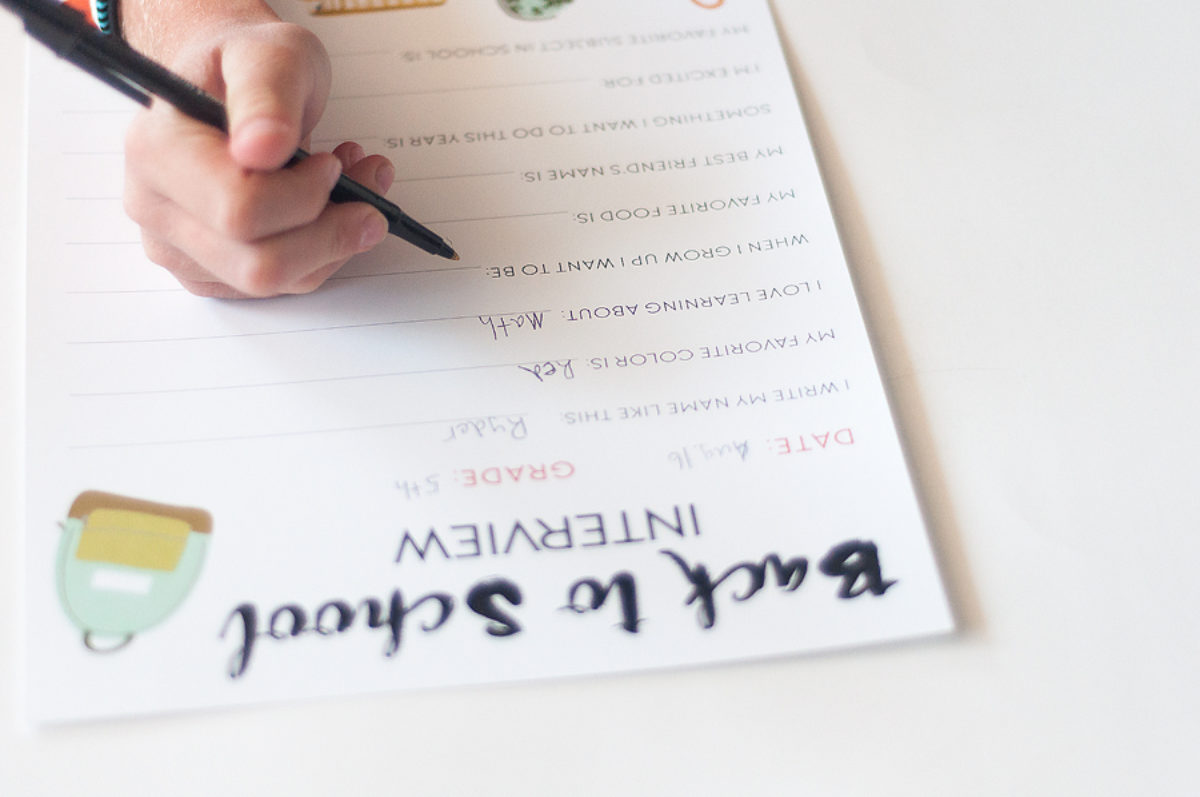 Back to School
INTERVIEW
DATE: Aug, 16 GRADE: 5th
I WRITE MY NAME LIKE THIS: Ryder
MY FAVORITE COLOR IS: Red
I LOVE LEARNING ABOUT: Math
WHEN I GROW UP I WANT TO BE:
MY FAVORITE FOOD IS:
MY BEST FRIEND'S NAME IS:
SOMETHING I WANT TO DO THIS YEAR IS:
I'M EXCITED FOR
MY FAVORITE SUBJECT IN SCHOOL IS: